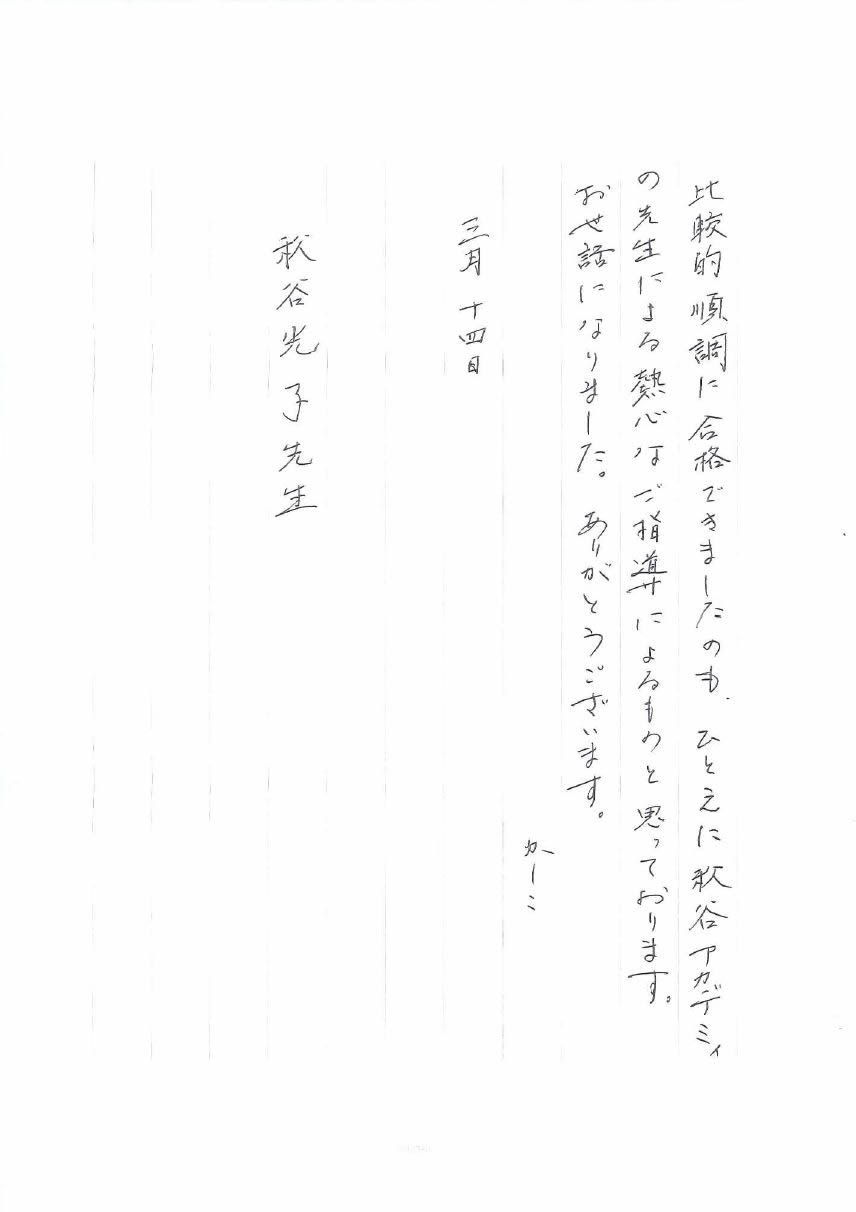 比較的順調に合格できましたのも、ひとえに秋谷アカデミィ
の先生による熱心なご指導によるものと思っております。
お世話になりました。ありがとうございます。
かしこ
三月十四日
秋谷光子先生